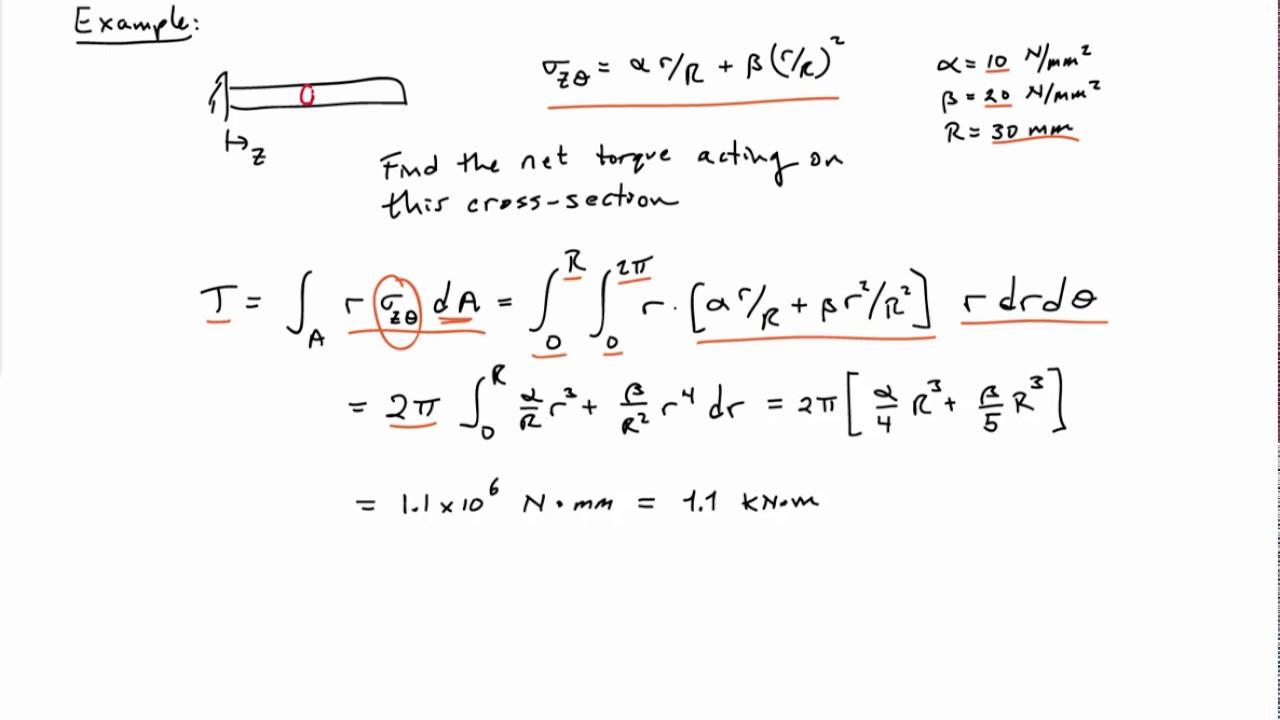 Example:
σ_zθ = α r/R + β(r/R)²
α = 10 N/mm²
β = 20 N/mm²
R = 30 mm
z
Find the net torque acting on
this cross-section
T = ∫_A r σ_zθ dA = ∫_0^R ∫_0^2π r · [α r/R + β r²/R²] r dr dθ
= 2π ∫_0^R α/R r³ + β/R² r⁴ dr = 2π [α/4 R³ + β/5 R³]
= 1.1 × 10⁶ N·mm = 1.1 kN·m